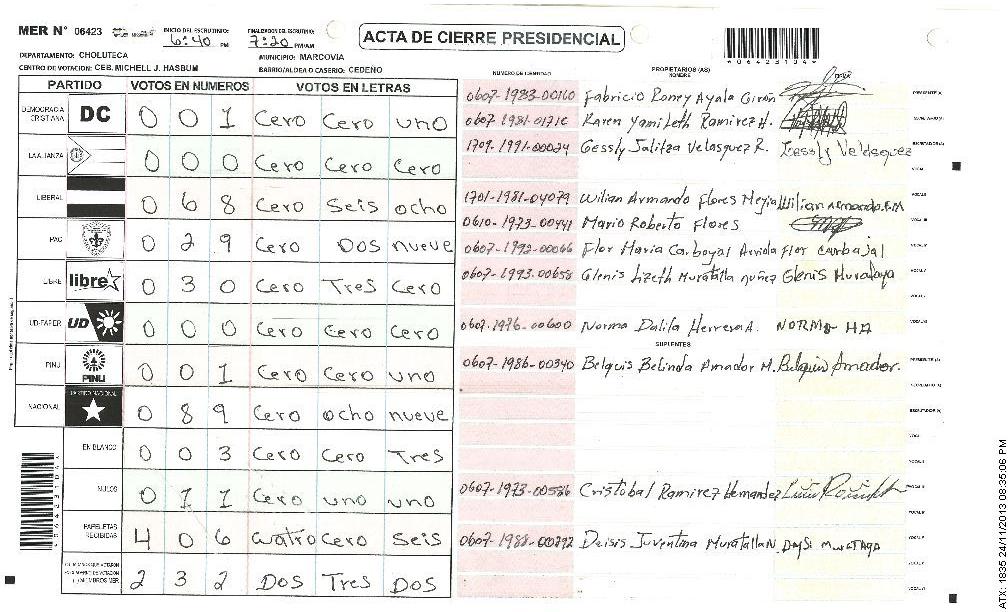 MER N° 06423
INICIO DEL ESCRUTINIO: 6:40 PM
FINALIZACION DEL ESCRUTINIO: 7:20 PM/AM
ACTA DE CIERRE PRESIDENCIAL
DEPARTAMENTO: CHOLUTECA
MUNICIPIO: MARCOVIA
CENTRO DE VOTACION: CEB. MICHELL J. HASBUM
BARRIO/ALDEA O CASERIO: CEDEÑO
PARTIDO VOTOS EN NUMEROS VOTOS EN LETRAS
DEMOCRACIA CRISTIANA DC 0 0 1 Cero Cero uno
LA ALIANZA 0 0 0 Cero Cero Cero
LIBERAL 0 6 8 Cero Seis ocho
PAC 0 2 9 Cero Dos nueve
LIBRE libre 0 3 0 Cero Tres Cero
UD-FAPER UD 0 0 0 Cero Cero Cero
PINU PINU 0 0 1 Cero Cero uno
NACIONAL PARTIDO NACIONAL 0 8 9 Cero ocho nueve
EN BLANCO 0 0 3 Cero Cero Tres
NULOS 0 1 1 Cero uno uno
PAPELETAS RECIBIDAS 4 0 6 Cuatro Cero Seis
2 3 2 Dos Tres Dos
NUMERO DE IDENTIDAD PROPIETARIOS (AS) NOMBRE
0607-1983-00160 Fabricio Roney Ayala Giron
Karen Yamileth Ramirez H.
1709-1991-00024 Gessly Jalitza Velasquez R. Gessly Velasquez
1701-1981-04079 Wilian Armando Flores Mejia Wilian Armando F.M
0610-1973-00441 Mario Roberto Flores
0607-1992-00066 Flor Maria Carbajal Arriola Flor Carbajal
0607-1993-00658 Glenis Lizeth Muratalla nuñez Glenis Muratalla
0607-1976-00600 Norma Dalila Herrera A. NORMA HA
SUPLENTES
0607-1986-00340 Belquis Belinda Amador M. Belquis Amador.
0607-1973-00586 Cristobal Ramirez Hernandez
0607-1988-00792 Deisis Juventina Muratalla N
ATX: 1835 24/11/2013 08:35:06 PM